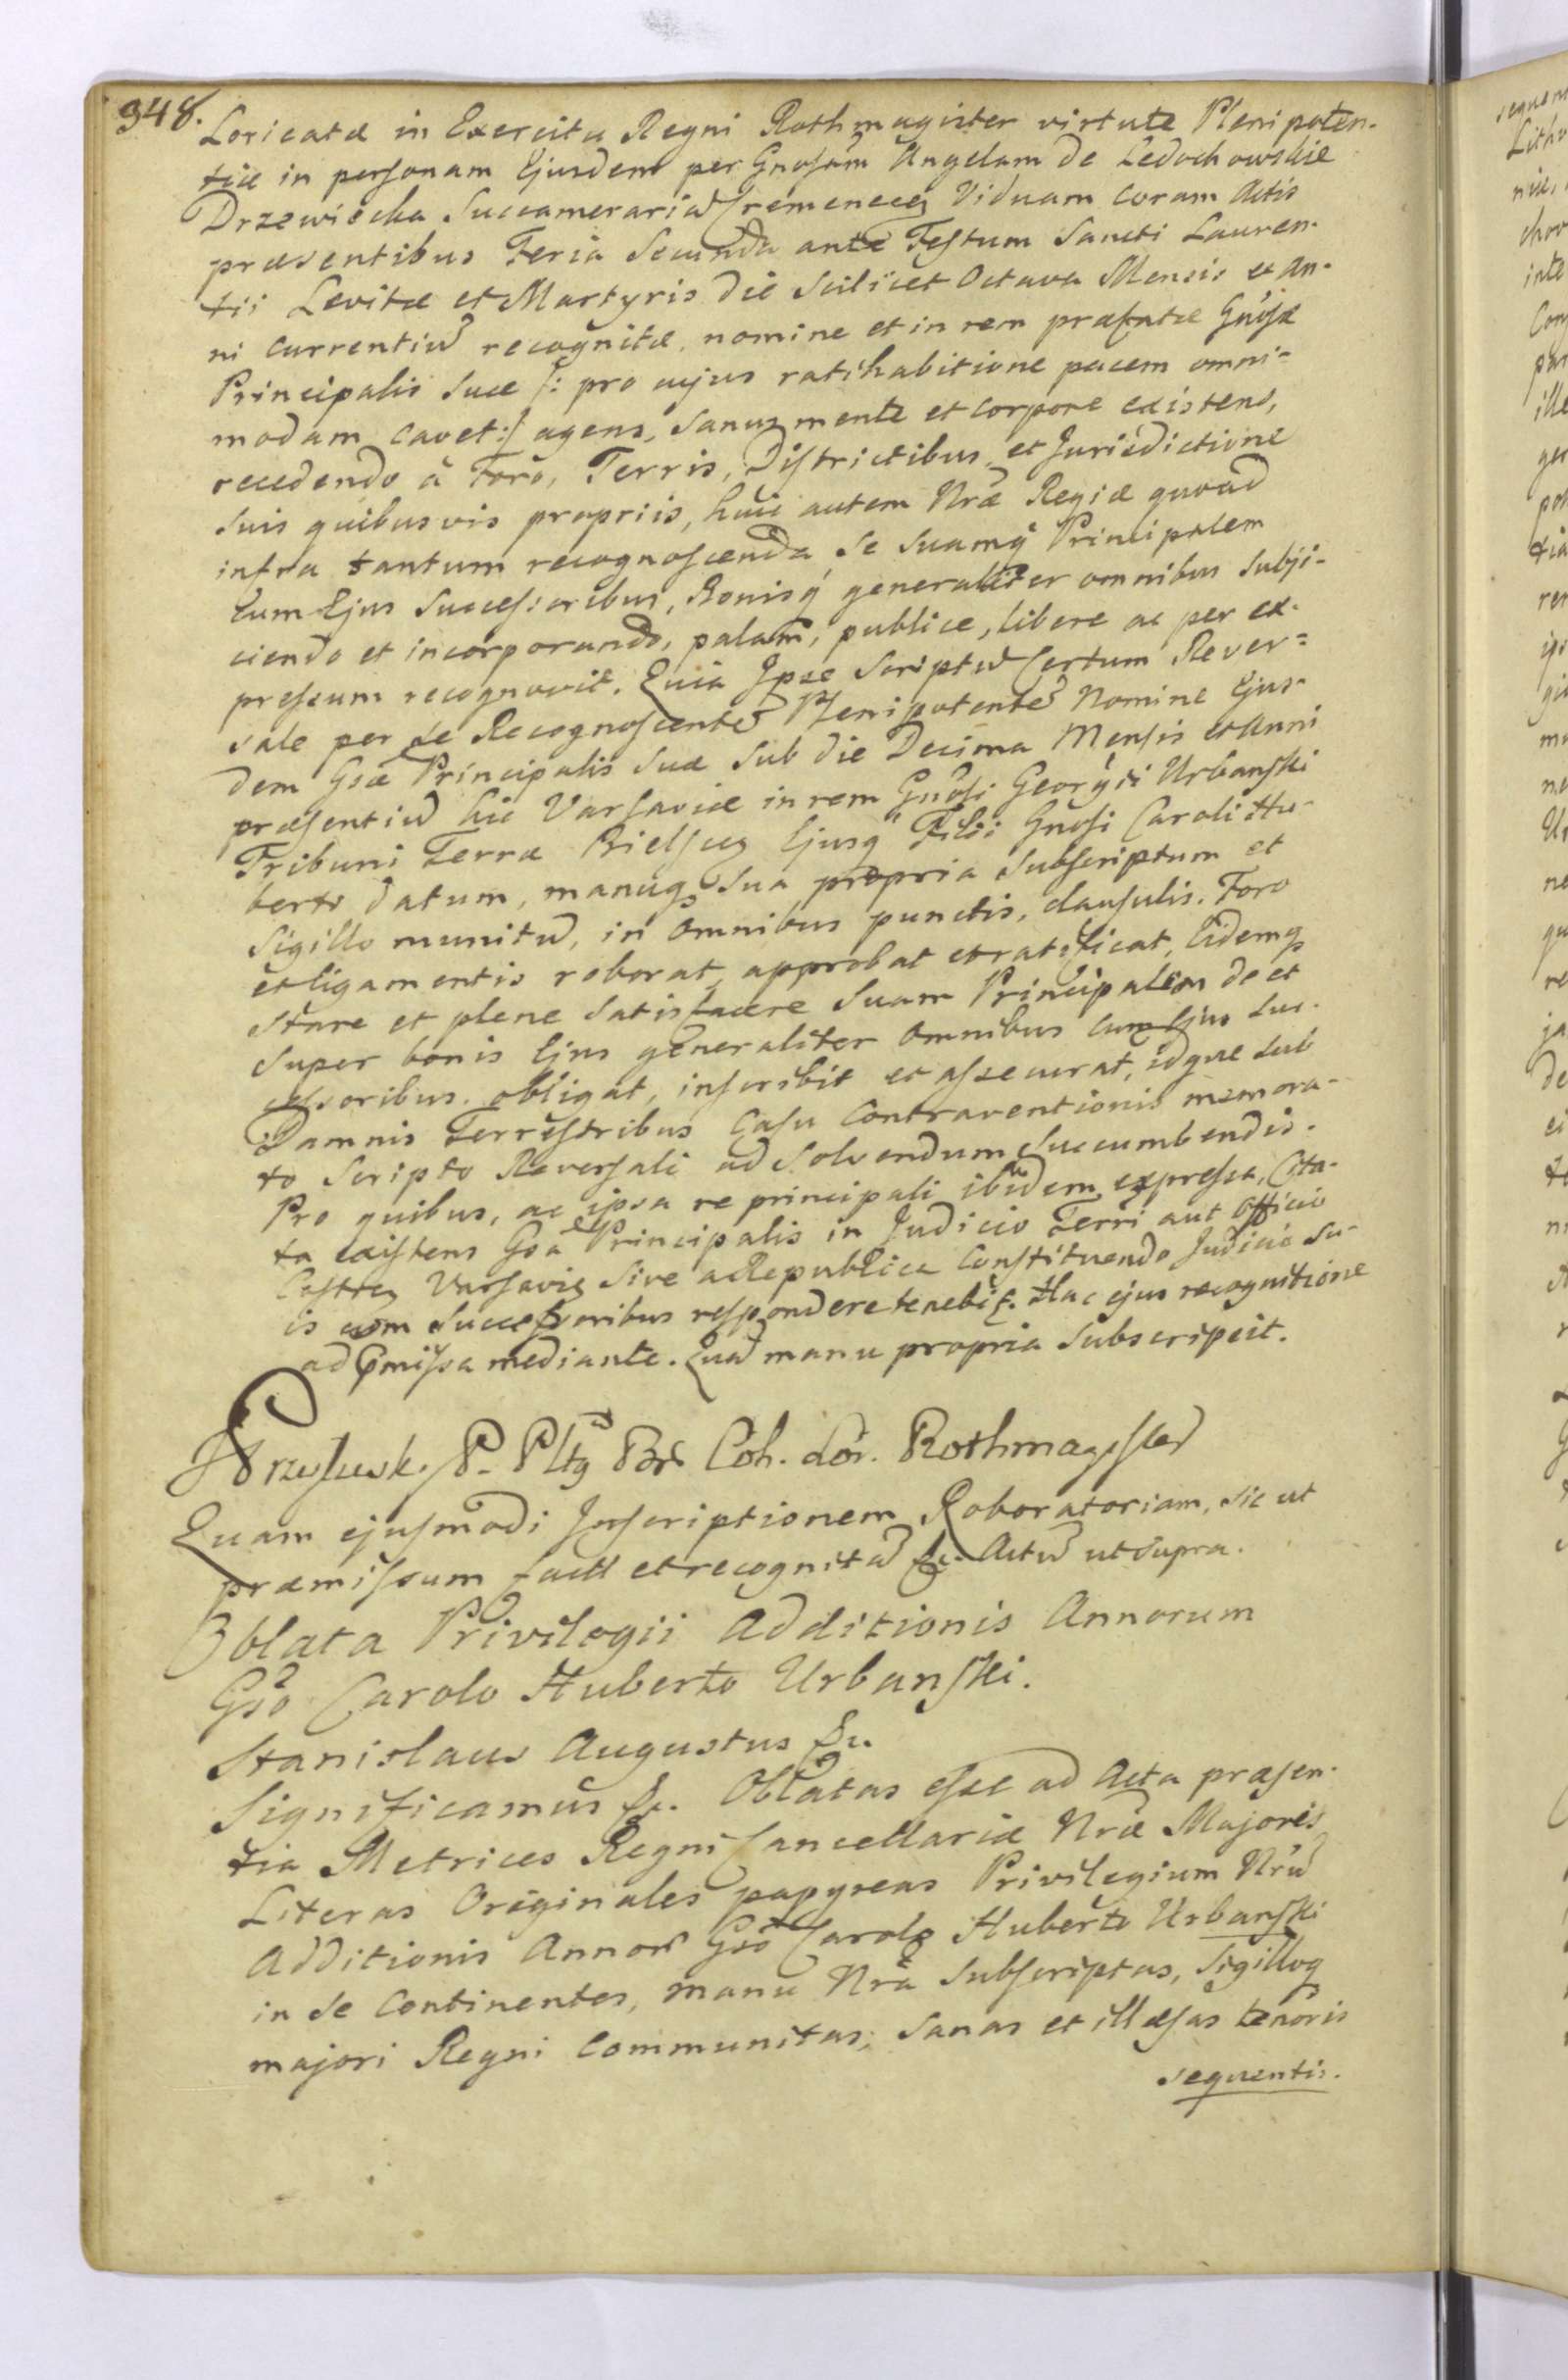 348.
Loricatæ in Exercitu Regni Rothmagister virtute Plenipoten-
tiæ in personam Ejusdem per Gnosam Angelam de Ledochowskie
Drzewiecka Succamerariam Cremenecen Viduam coram Actis
præsentibus Feria Secunda ante Festum Sancti Lauren-
tii Levitæ et Martyris die Scilicet Octava Mensis et An-
ni currentium recognitæ, nomine et in rem præfatæ Gnosæ
Principalis Suæ /: pro cujus ratihabitione pacem omni-
modam cavet :/ agens, Sanus mente et corpore existens,
recedendo à Foro, Terris, Districtibus, et Jurisdictione
Suis quibusvis propriis, huic autem Nræ Regiæ quoad
infra tantum recognoscenda, se Suamq Principalem
cum Ejus Successoribus, Bonisq generaliter omnibus Subji-
ciendo et incorporando, palam, publice, libere ac per ex-
pressum recognovit. Quia Ipse Scriptum Certum Rever-
sale per se Recognoscentem Plenipotentem Nomine Ejus-
dem Gsæ Principalis Suæ Sub die Decima Mensis et Anni
præsentium hic Varsaviæ in rem Gnosi Georgii Urbanski
Tribuni Terræ Bielscen Ejusq Filii Gnosi Caroli Hu-
berto datum, manuq Sua propria Subscriptum et
Sigillo munitum, in omnibus punctis, clausulis, Foro
et ligamentis roborat, approbat et ratificat, Eidemq
Stare et plene Satisfacere Suam Principalem de et
Super bonis Ejus generaliter omnibus cum Ejus Suc-
cessoribus obligat, inscribit et assecurat, idque Sub
Damnis Terrestribus Casu Contraventionis memora-
to Scripto Reversali ad Solvendum Succumbendis.
Pro quibus, ac ipsa re principali ibidem expressa, Cita-
ta existens Gsa Principalis in Judicio Terri aut Officio
Castren Varsavien Sive a Republica Constituendo Judicio Su-
is cum Successoribus respondere tenebit. Hac ejus recognitione
ad pmissa mediante. Quam manu propria Subscripsit.
P. Coh. Lor. Rothmagister
Quam ejusmodi Inscriptionem Roboratoriam, sic ut
præmissum factam et recognitam &c. Actum ut supra.
Oblata Privilegii Additionis Annorum
Gso Carolo Huberto Urbanski.
Stanislaus Augustus &c.
Significamus &c. Oblatas esse ad Acta præsen-
tia Metrices Regni Cancellariæ Nræ Majoris
Literas Originales papyreas Privilegium Nrum
Additionis Annor Gso Carolo Huberto Urbanski
in se Continentes, manu Nra Subscriptas, Sigilloq
majori Regni Communitas, Sanas et illæsas tenoris
sequentis.